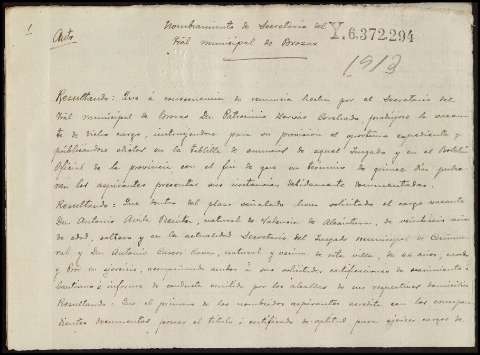 1
Auto
Nombramiento de Secretario del
Y.6.372.294
Tral municipal de Brozas
1913
Resultando: Que á consecuencia de renuncia hecha por el Secretario del
Tral municipal de Brozas Dn. Patrocinio produjose la vacan-
te de dicho cargo, instruyendose para su provision el oportuno expediente y
publicandose edictos en la tablilla de anuncios de aquel Juzgado y en el Boletin
Oficial de la provincia con el fin de que en termino de quince dias pudie-
ran los aspirantes presentar sus instancias debidamente documentadas.
Resultando: Que dentro del plazo señalado han solicitado el cargo vacante
Dn. Antonio Avila natural de Valencia de Alcantara, de veintiseis años
de edad, soltero y en la actualidad Secretario del Juzgado municipal de
y Dn. Antonio natural y vecino de esta villa, de años,
y en ejercicio, acompañando ambos á sus solicitudes certificaciones de nacimiento ó
bautismo é informe de conducta emitido por los alcaldes de sus respectivos domicilios
Resultando: Que el primero de los nombrados aspirantes acredita con los correspon-
dientes documentos poseer el titulo ó certificado de aptitud para ejercer cargos de